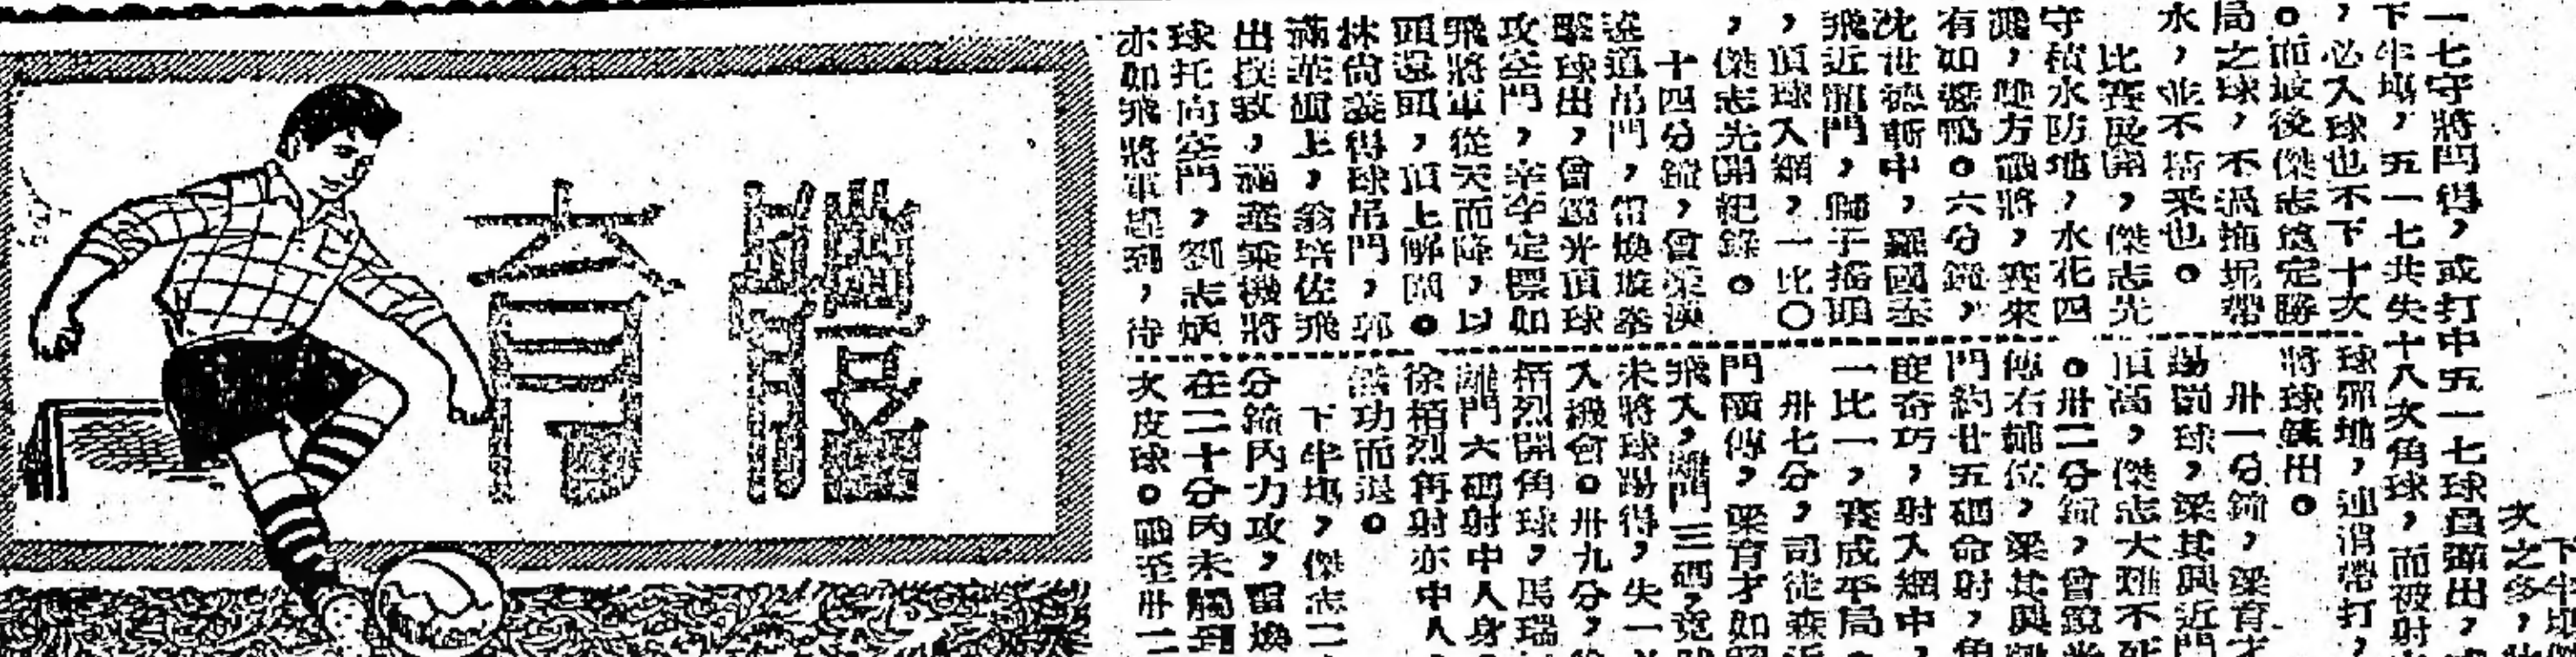 下半塲
次之多，
一七守將閂得，或打中五一七球員彈出，
下半塲，五一七共失十八次角球，而被射
，必入球也不下十次
。而最後傑志竟定勝
局之球，不過拖坭帶
水，並不精采也。
比賽展開，傑志先
守積水防地，水花四
濺，雙方戰將，賽來
有如鴨。六分鐘，
沈世德斬中，羅國泰
飛近開門，獅子搖頭
，頂球入網，一比〇
，傑志先開紀錄。
十四分鐘，曾榮漢
遠道吊門，雷煥璇拳
擊球出，曾鏡光頂球
攻空門，辛辛定標如
飛將軍從天而降，以
頭還頭，頂上解圍。
尚義得球吊門，郭
滿華頭上，翁培佐飛
出撲救，滿華乘機將
球托向空門，劉志炳
亦如飛將軍趕到，待
球彈地，連消帶打，
將球出。
卅一分鐘，梁育才
踢罰球，梁其興近門
頂高，傑志大難不死
。卅二分鐘，曾鏡光
傳右輔位，梁其興
門約廿五碼命射，角
度奇巧，射入網中，
一比一，賽成平局
卅七分，司徒森
門橫傳，梁育才如
飛入，離門三碼，竟
未將球踢得，失一
入機會。卅九分，
栢烈開角球，馬瑞
離門六碼射中人身
徐栢烈再射亦中人
無功而退。
下半塲，傑志二
分鐘內力攻，雷煥
在二十分內未觸到
次皮球。戰至卅二
體育